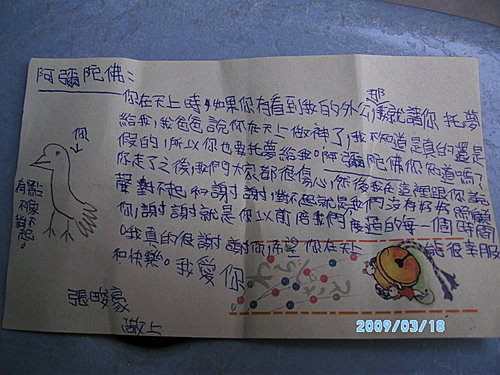 阿彌陀佛:
你在天上時,如果你有看到我的外公,那就請你 托夢
給我,我爸爸說你在天上做神了,我不知道是真的還是
假的,所以你也要托夢給我。阿彌陀佛你知道嗎?
你走了之後,我們大家都很傷心,然後我在這裡跟你說
聲對不起和謝謝,對不起就是我們沒有好好照顧
你,謝謝就是你以前陪我們度過的每一個時間
。我真的很謝謝你,希望你在天上 能很幸服
和快樂。我愛你
張畯豪
敬上
你
2009/03/18